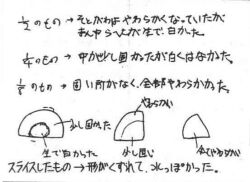 1/2のもの→そとがわはやわらかくなっていたが
まん中らへんが生で、白かった。
1/4のもの→中がすこし固かったが白くはなかった。
1/8のもの→固い所がなく、全部やわらかかった。
やわらかい
少し固かった
生で白かった
少し固い
全てやわらかい
スライスしたもの→形がくずれて、水っぽかった。